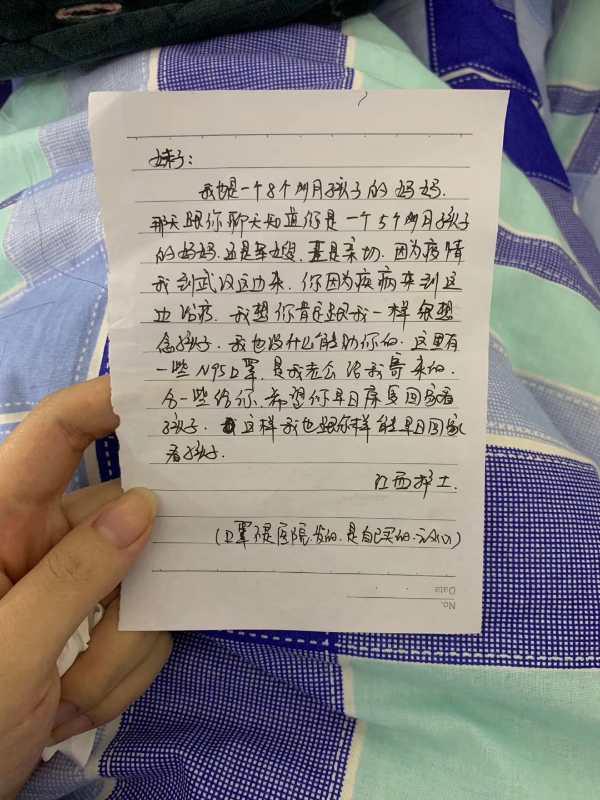 妹子:
我也是一个8个多月孩子的妈妈.
那天跟你聊天知道你是一个5个多月孩子
的妈妈.还是军嫂.甚是亲切.因为疫情
我到武汉这边来.你因为疾病来到这
边治疗.我想你肯定跟我一样很想
念孩子.我也没什么能助你的.这里有
一些N95口罩.是我老公给我寄来的.
分一些给你.希望你早日康复回家看
孩子.这样我也跟你一样能早日回家
看孩子.
江西护士.
(口罩不是医院发的.是自己买的.放心)
No.
Date